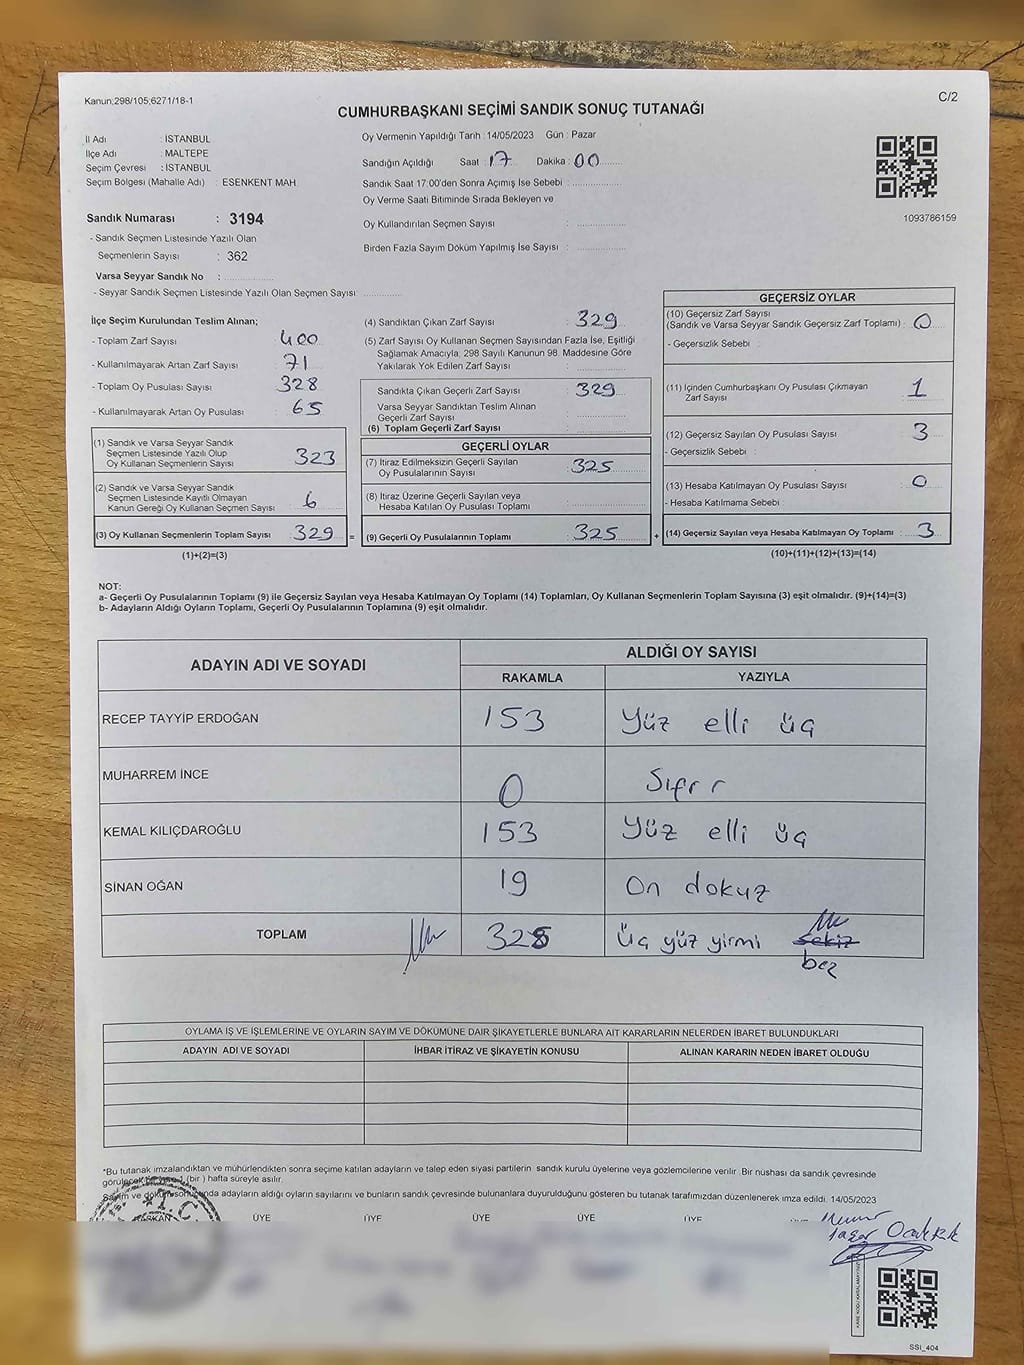 Kanun;298/105;6271/18-1
C/2
CUMHURBAŞKANI SEÇİMİ SANDIK SONUÇ TUTANAĞI
İl Adı : İSTANBUL
İlçe Adı : MALTEPE
Seçim Çevresi : İSTANBUL
Seçim Bölgesi (Mahalle Adı) : ESENKENT MAH.
Oy Vermenin Yapıldığı Tarih : 14/05/2023 Gün : Pazar
Sandığın Açıldığı Saat : 17 Dakika : 00
Sandık Saat 17:00'den Sonra Açımış İse Sebebi :
Oy Verme Saati Bitiminde Sırada Bekleyen ve
Oy Kullandırılan Seçmen Sayısı :
Birden Fazla Sayım Döküm Yapılmış İse Sayısı :
1093786159
Sandık Numarası : 3194
- Sandık Seçmen Listesinde Yazılı Olan
Seçmenlerin Sayısı : 362
Varsa Seyyar Sandık No :
- Seyyar Sandık Seçmen Listesinde Yazılı Olan Seçmen Sayısı :
İlçe Seçim Kurulundan Teslim Alınan;
- Toplam Zarf Sayısı : 400
- Kullanılmayarak Artan Zarf Sayısı : 71
- Toplam Oy Pusulası Sayısı : 328
- Kullanılmayarak Artan Oy Pusulası : 65
(1) Sandık ve Varsa Seyyar Sandık
Seçmen Listesinde Yazılı Olup
Oy Kullanan Seçmenlerin Sayısı : 323
(2) Sandık ve Varsa Seyyar Sandık
Seçmen Listesinde Kayıtlı Olmayan
Kanun Gereği Oy Kullanan Seçmen Sayısı : 6
(3) Oy Kullanan Seçmenlerin Toplam Sayısı : 329 =
(1)+(2)=(3)
(4) Sandıktan Çıkan Zarf Sayısı : 329
(5) Zarf Sayısı Oy Kullanan Seçmen Sayısından Fazla İse, Eşitliği
Sağlamak Amacıyla; 298 Sayılı Kanunun 98. Maddesine Göre
Yakılarak Yok Edilen Zarf Sayısı :
Sandıkta Çıkan Geçerli Zarf Sayısı : 329
Varsa Seyyar Sandıktan Teslim Alınan
Geçerli Zarf Sayısı :
(6) Toplam Geçerli Zarf Sayısı :
GEÇERLİ OYLAR
(7) İtiraz Edilmeksizin Geçerli Sayılan
Oy Pusulalarının Sayısı : 325
(8) İtiraz Üzerine Geçerli Sayılan veya
Hesaba Katılan Oy Pusulası Toplamı :
(9) Geçerli Oy Pusulalarının Toplamı : 325 +
GEÇERSİZ OYLAR
(10) Geçersiz Zarf Sayısı
(Sandık ve Varsa Seyyar Sandık Geçersiz Zarf Toplamı) : 0
- Geçersizlik Sebebi :
(11) İçinden Cumhurbaşkanı Oy Pusulası Çıkmayan
Zarf Sayısı : 1
(12) Geçersiz Sayılan Oy Pusulası Sayısı : 3
- Geçersizlik Sebebi :
(13) Hesaba Katılmayan Oy Pusulası Sayısı : 0
- Hesaba Katılmama Sebebi :
(14) Geçersiz Sayılan veya Hesaba Katılmayan Oy Toplamı : 3
(10)+(11)+(12)+(13)=(14)
NOT:
a- Geçerli Oy Pusulalarının Toplamı (9) ile Geçersiz Sayılan veya Hesaba Katılmayan Oy Toplamı (14) Toplamları, Oy Kullanan Seçmenlerin Toplam Sayısına (3) eşit olmalıdır. (9)+(14)=(3)
b- Adayların Aldığı Oyların Toplamı, Geçerli Oy Pusulalarının Toplamına (9) eşit olmalıdır.
ADAYIN ADI VE SOYADI ALDIĞI OY SAYISI
RAKAMLA YAZIYLA
RECEP TAYYİP ERDOĞAN 153 Yüz elli üç
MUHARREM İNCE 0 Sıfır
KEMAL KILIÇDAROĞLU 153 Yüz elli üç
SİNAN OĞAN 19 On dokuz
TOPLAM 325 Üç yüz yirmi sekiz
beş
OYLAMA İŞ VE İŞLEMLERİNE VE OYLARIN SAYIM VE DÖKÜMÜNE DAİR ŞİKAYETLERLE BUNLARA AİT KARARLARIN NELERDEN İBARET BULUNDUKLARI
ADAYIN ADI VE SOYADI İHBAR İTİRAZ VE ŞİKAYETİN KONUSU ALINAN KARARIN NEDEN İBARET OLDUĞU
*Bu tutanak imzalandıktan ve mühürlendikten sonra seçime katılan adayların ve talep eden siyasi partilerin sandık kurulu üyelerine veya gözlemcilerine verilir. Bir nüshası da sandık çevresinde
(bir) hafta süreyle asılır.
adayların aldığı oyların sayılarını ve bunların sandık çevresinde bulunanlara duyurulduğunu gösteren bu tutanak tarafımızdan düzenlenerek imza edildi. 14/05/2023
BAŞKAN ÜYE ÜYE ÜYE ÜYE ÜYE
T.C.
SSI_404